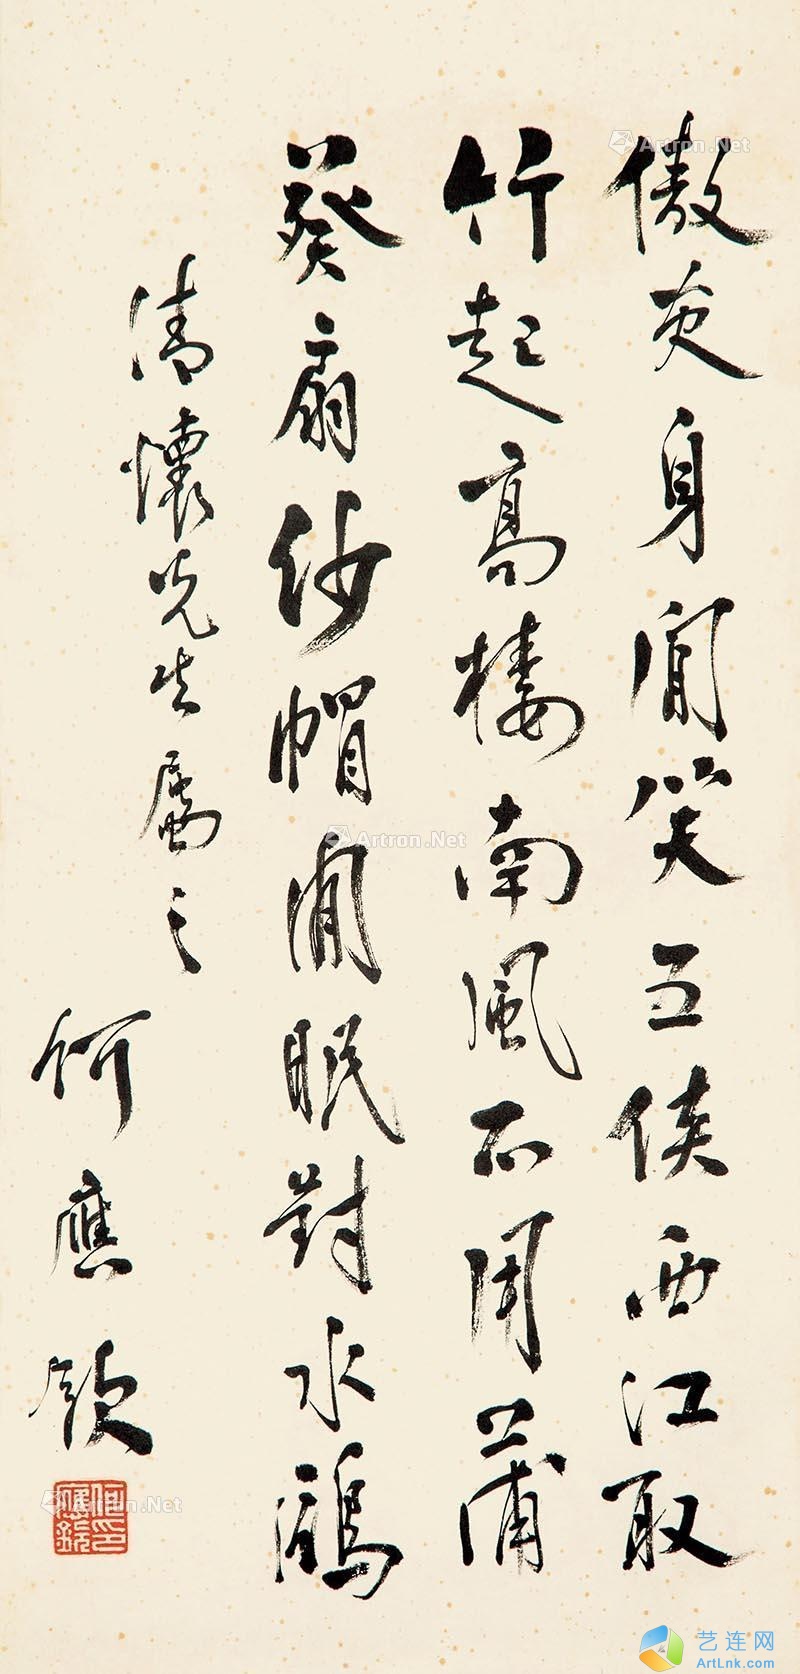 傲更身閒笑五侯西江取
竹起高樓南風不用蒲
葵扇紗帽閒眠對水鷗
清懷先生屬之
何應欽
何應欽印
Artron.Net
Artron.Net
Artron.Net
艺连网
ArtLnk.com